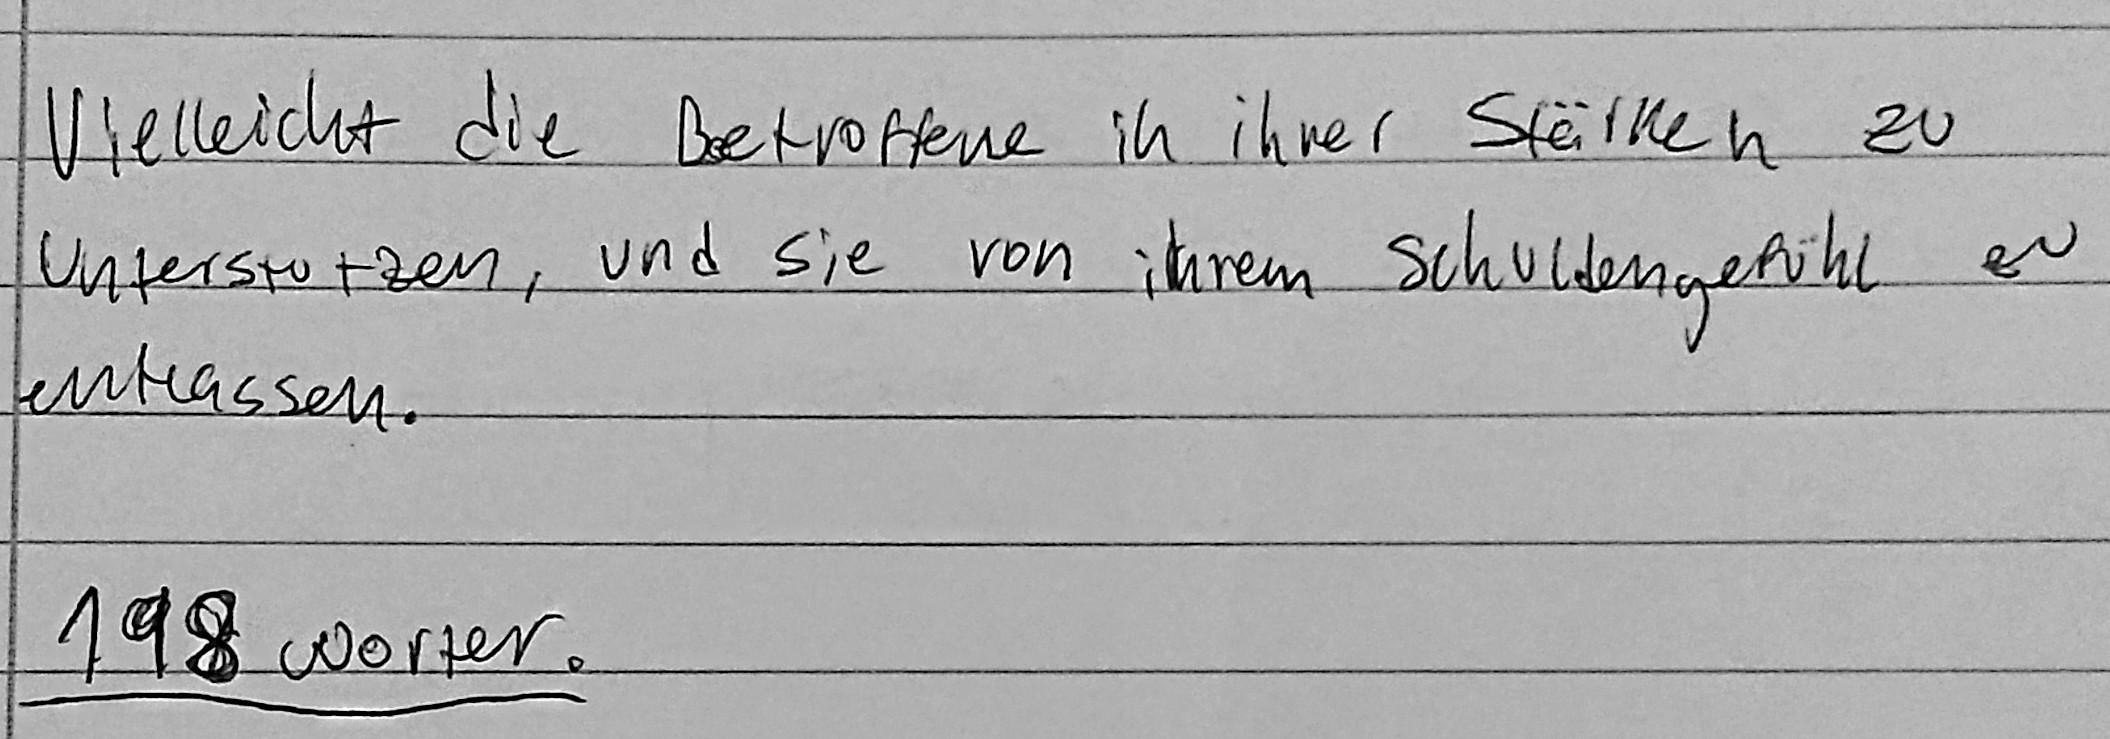 Vielleicht die Betroffene in ihrer Stärken zu
Unterstutzen, und sie von ihrem Schuldengefühl zu
entlassen.
198 worter.